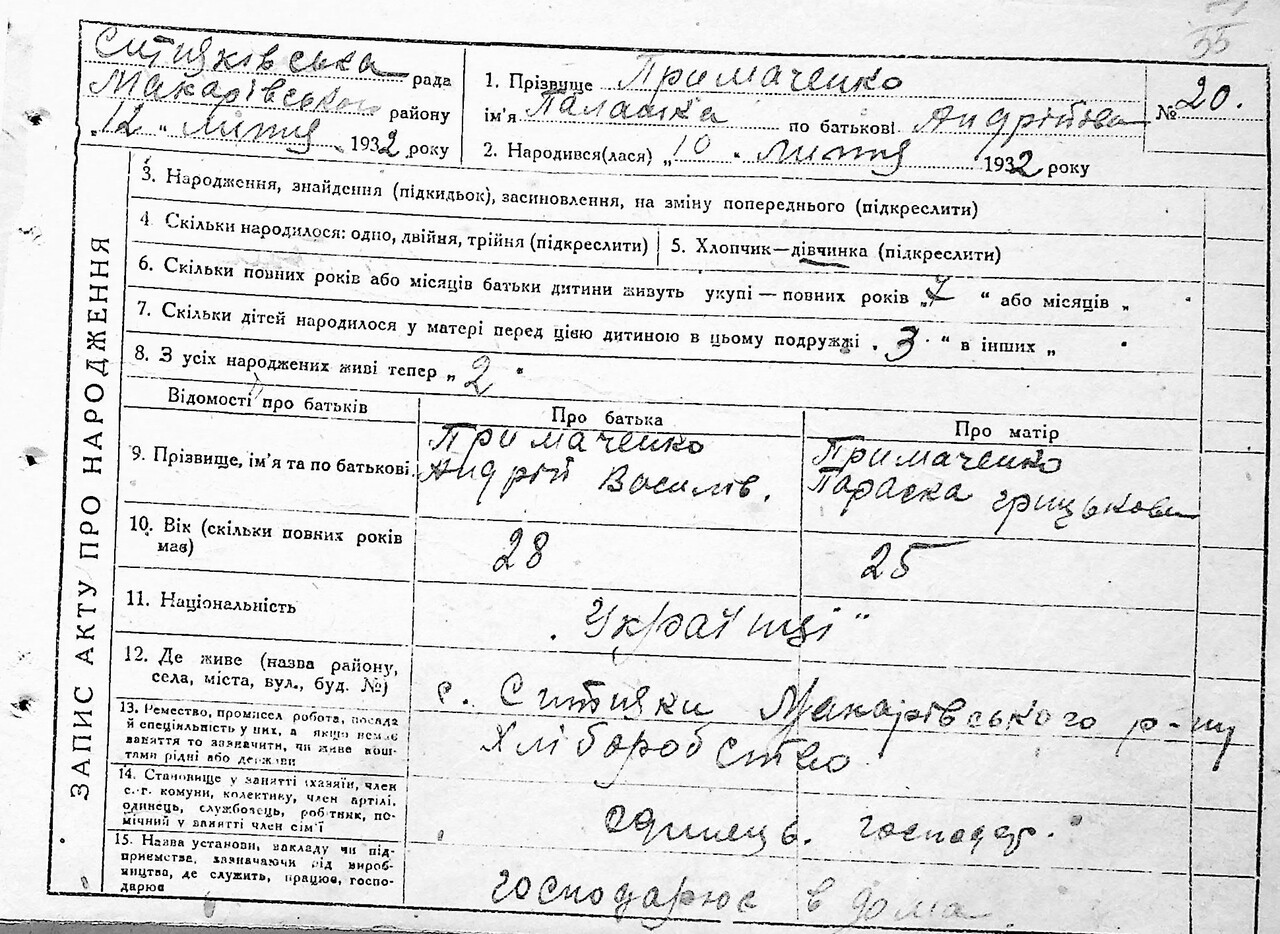 55
Ситняківська рада
Макарівського району
„12“ липня 1932 року
1. Прізвище Примаченко
ім'я Палажка по батькові Андрійова
2. Народився(лася) „10“ липня 1932 року
№ 20.
ЗАПИС АКТУ ПРО НАРОДЖЕННЯ
3. Народження, знайдення (підкидьок), засиновлення, на зміну попереднього (підкреслити)
4 Скільки народилося: одно, двійня, трійня (підкреслити) 5. Хлопчик—дівчинка (підкреслити)
6. Скільки повних років або місяців батьки дитини живуть укупі — повних років „7“ або місяців „
7. Скільки дітей народилося у матері перед цією дитиною в цьому подружжі „3“ в інших „
8. З усіх народжених живі тепер „2“
Відомості про батьків
Про батька
Про матір
9. Прізвище, ім'я та по батькові.
Примаченко
Андрій Василів.
Примаченко
Параска Грицькова
10. Вік (скільки повних років
має)
28
25
11. Національність
„Українці“
12. Де живе (назва району,
села, міста, вул., буд. №)
с. Ситняки Макарівського р-ну
13. Ремество, промисел робота, посада
й спеціяльність у них, а якщо немає
заняття то зазначити, чи живе кош-
тами рідні або держави
Хліборобство
14. Становище у занятті (хазяїн, член
с.-г. комуни, колективу, член артілі,
одинець, службовець, робітник, по-
мічний у занятті член сім'ї
єдинець. господар.
15. Назва установи, закладу чи під-
приємства, зазначаючи рід вироб-
ництва, де служить, працює, госпо-
дарює
господарює в дома